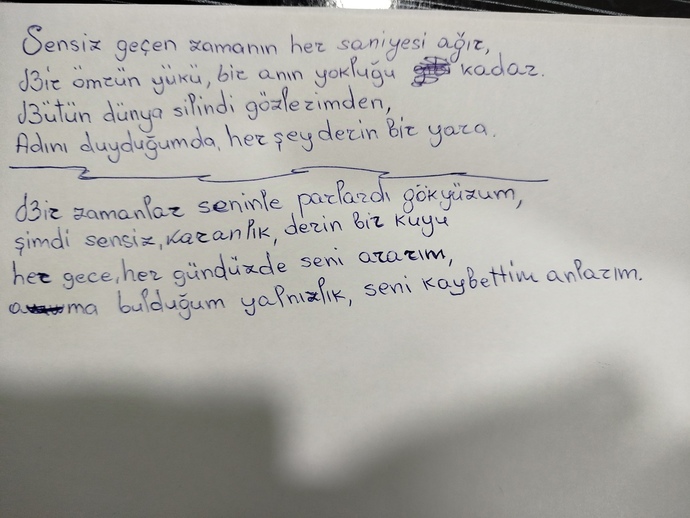 Sensiz geçen zamanın her saniyesi ağır,
Bir ömrün yükü, bir anın yokluğu kadar.
Bütün dünya silindi gözlerimden,
Adını duyduğumda, her şey derin bir yara.
Bir zamanlar seninle parlardı gökyüzüm,
şimdi sensiz, karanlık, derin bir kuyu
her gece, her gündüzde seni ararım,
ama bulduğum yalnızlık, seni kaybettim anlarım.